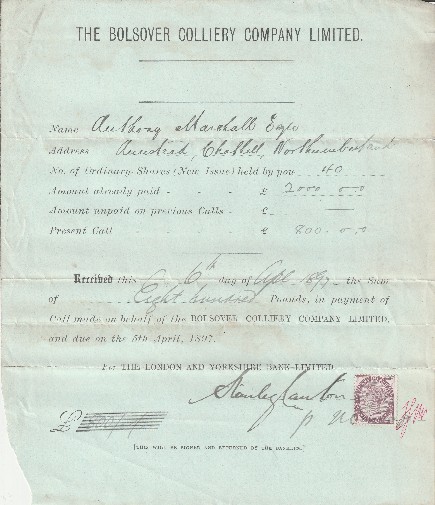 THE BOLSOVER COLLIERY COMPANY LIMITED.
Name Anthony Marshall Esqre
Address Chathill, Northumberland
No. of Ordinary Shares (New Issue) held by you 40
Amount already paid - - - £ 2000 . 0 . 0
Amount unpaid on previous Calls - £
Present Call - - - - £ 800 . 0 . 0
Received this 6th day of April 1897 the Sum
of Eight hundred Pounds, in payment of
Call made on behalf of the BOLSOVER COLLIERY COMPANY LIMITED,
and due on the 5th April, 1897.
For THE LONDON AND YORKSHIRE BANK LIMITED
Stanley
£
[THIS WILL BE SIGNED AND RETURNED BY THE BANKERS.]